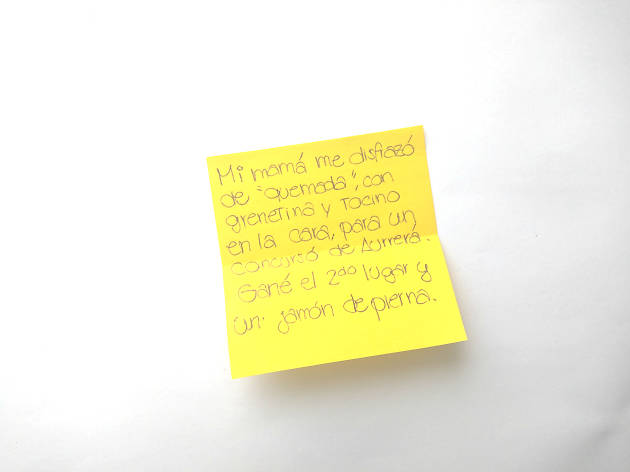 Mi mamá me disfrazó
de "quemada", con
grenetina y Tocino
en la cara, para un
concurso de Aurrerá.
Gané el 2do lugar y
un jamón de pierna.